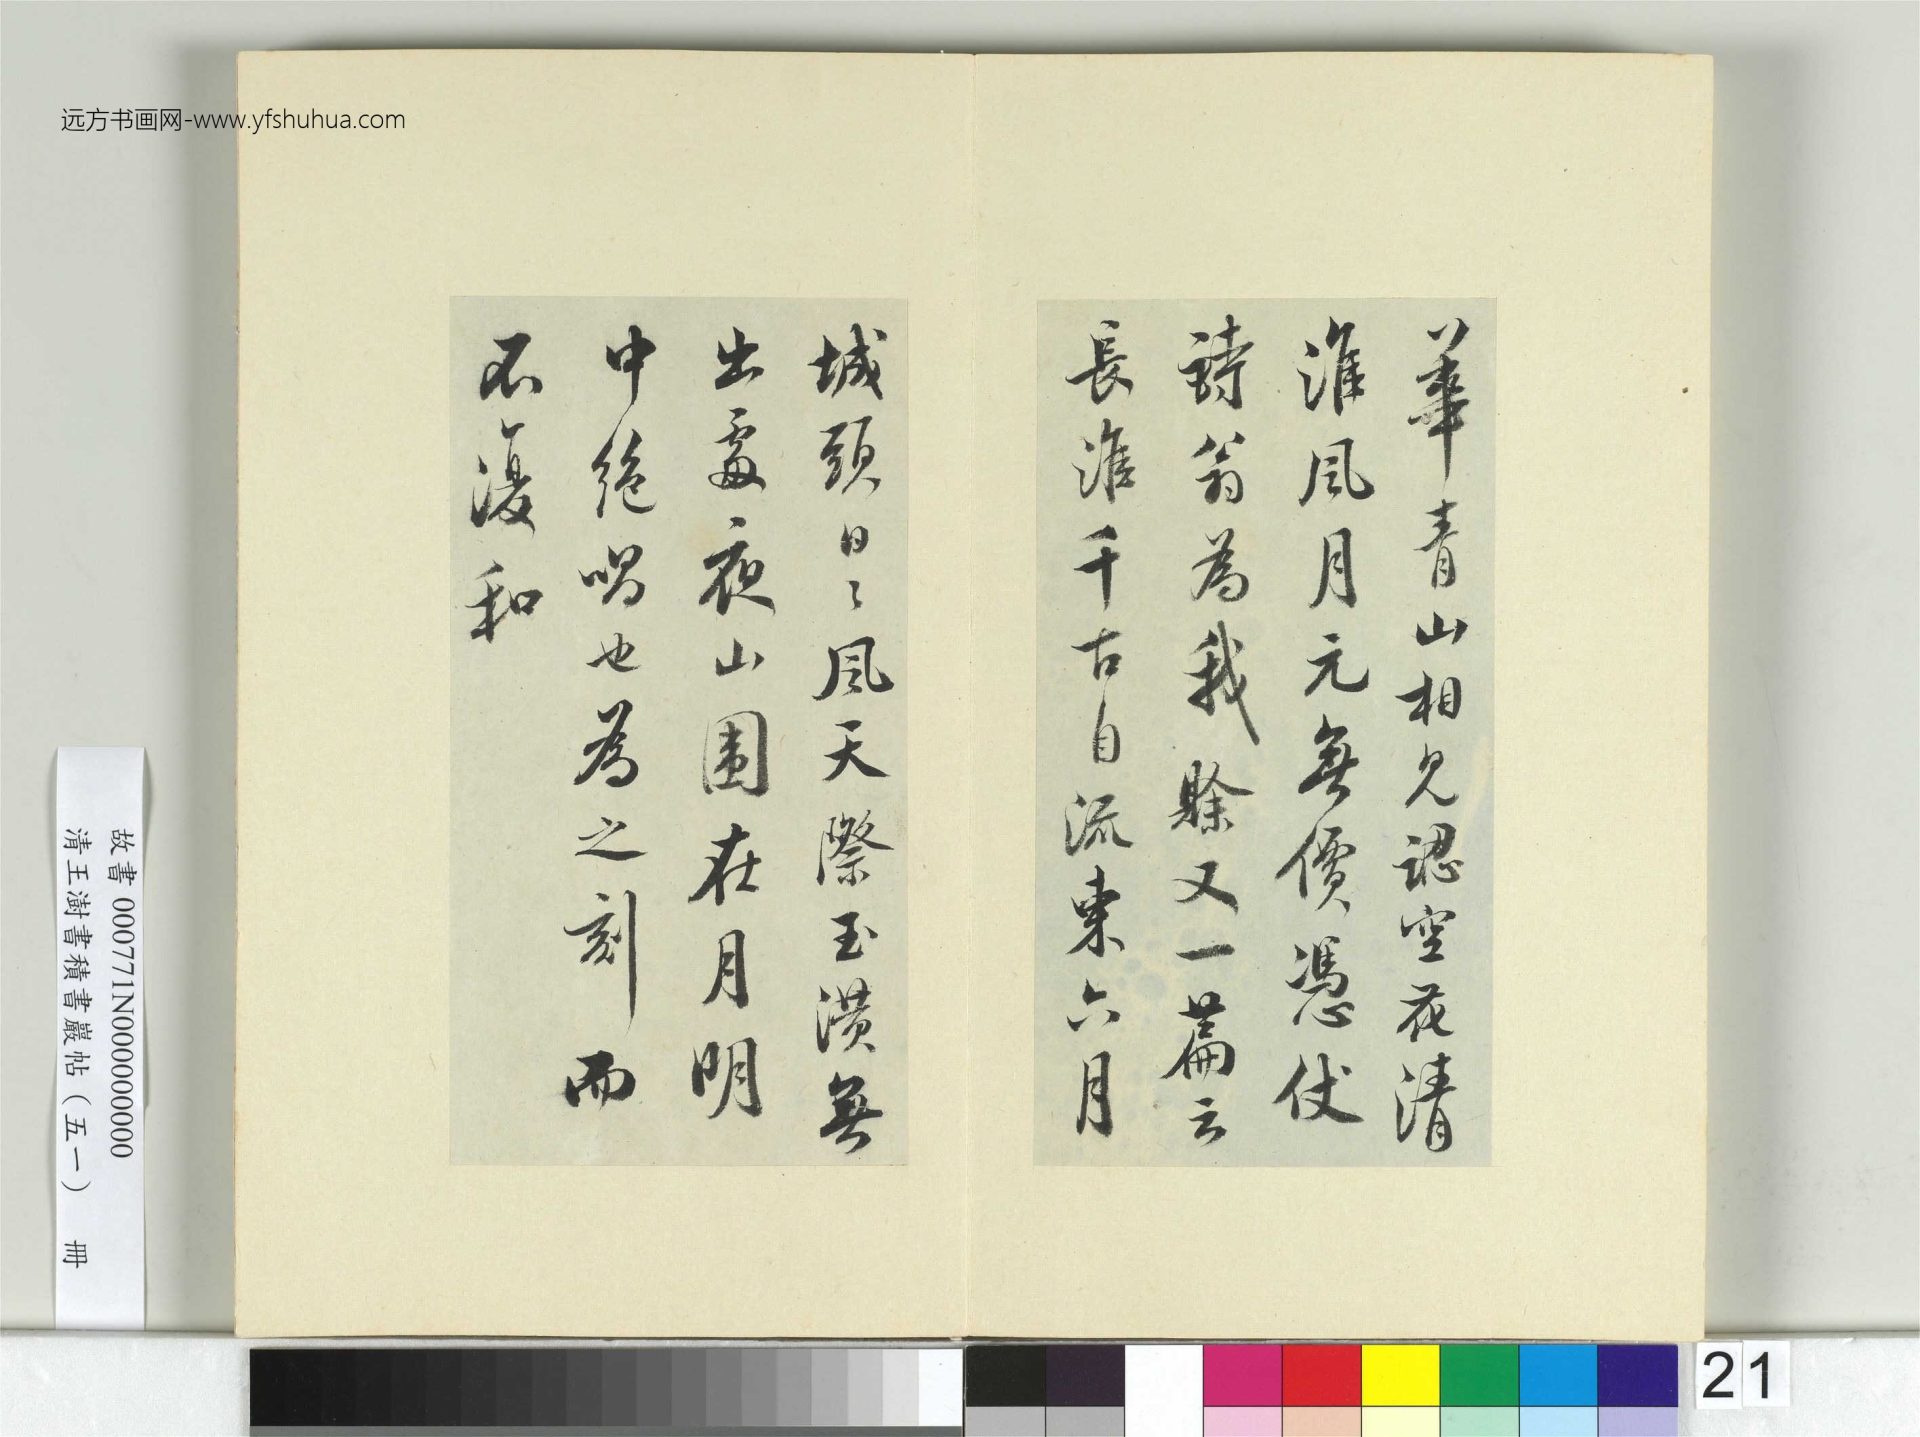 远方书画网-www.yfshuhua.com
華青山相見認空花清
淮風月元無價憑仗
詩翁為我賒又一篇云
長淮千古自流東六月
城頭日〻風天際玉潢無
出處夜山圍在月明
中絶唱也為之刻而
不復和
故書 000771N000000000
清王澍書積書巖帖（五一） 冊
21